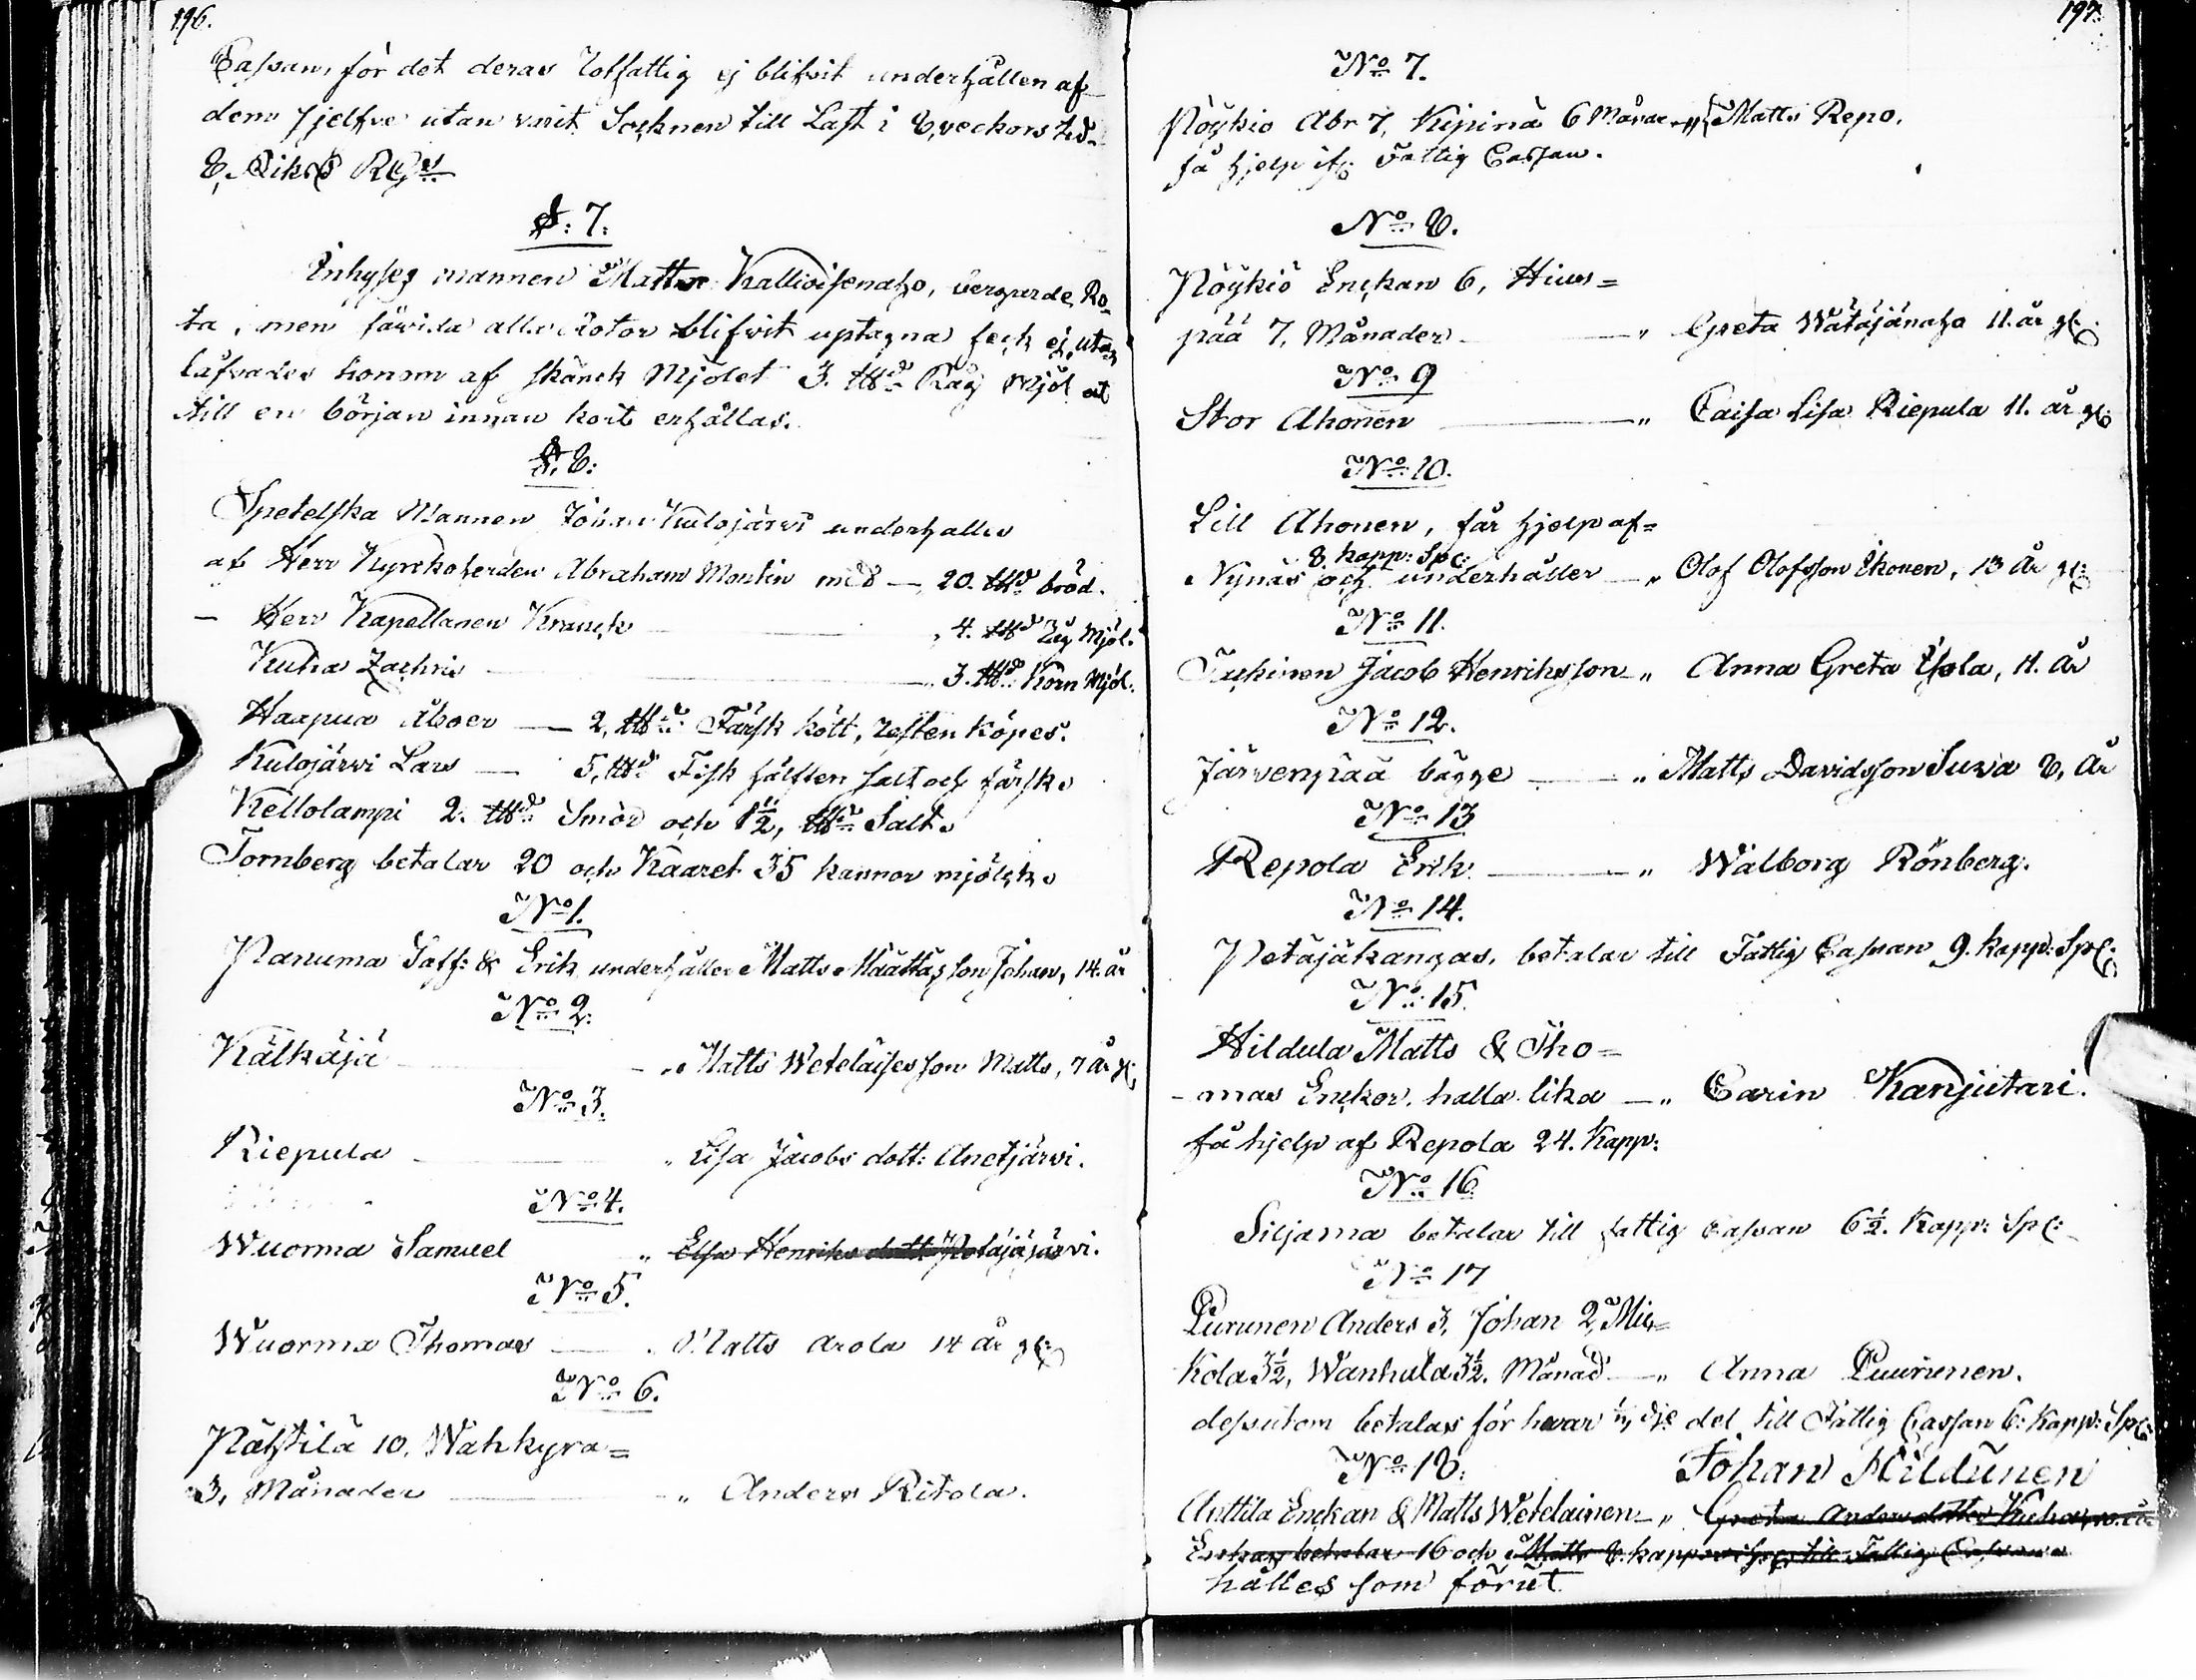 196.
Cassan, för det deras Rotfattig ej blifvit underhållen af
dem sjelfve utan varit Socknen till Last i 8, veckors tid.
8, Riksd RGs
§: 7.
Inhyses mannen Matts Kallioisenaho, begärde Ro-
ta, men såvida alla Rotor blifvit uptagna feck ej, utan
låfvades honom af skänck Mjölet 3. ttd Råg Mjöl at
till en början innan kort erhållas.
§. 8:
Spetelska Mannen Johan Kulojärvi underhålles
af Herr Kyrckoherden Abraham Montin med — 20. ttd bröd.
— Herr Kapellanen Kranck — 4. ttd Råg Mjöl.
Kuha Zachris — 3. ttd Korn Mjöl.
Haapua Åboer — 2, ttd Färsk kött, resten köpes.
Kulojärvi Lars — 5, ttd Fisk hälften salt och färsk.
Kellolampi 2. ttd Smör och 1½, ttd Salt.
Tornberg betalar 20 och Kaaret 35 kannor mjölck.
No 1.
Panuma Saff: & Erik underhåller Matts Määttäs son Johan, 14. år
No 2.
Kälkäjä — „ Matts Weteläises son Matts, 7 År gl:
No 3.
Riepula — „ Lisa Jacobs dott: Anetjärvi.
No 4.
Wuorma Samuel „ Elsa Henriks dotter Petäjäjärvi.
No 5.
Wuorma Thomas — „ Matts Arola 14 år gl:
No 6.
Pätsilä 10, Wähkyrä=
3, Månader — „ Anders Ritola.
197.
No 7.
Pöykiö Abr 7, Kipinä 6 Månader „ Matts Repo.
få hjelp ifr: Fattig Cassan.
No 8.
Pöykiö Enckan 6, Hius=
pää 7, Månader — „ Greta Wätäjänaho 11. år gl:
No 9
Stor Ahonen — „ Caisa Lisa Riepula 11. år gl:
No 10.
Lill Ahonen, får hjelp af=
8. kapp: Spl:
Nynäs och underhåller — „ Olof Olofsson Ikonen, 13 År gl:
No 11.
Juckinen Jacob Henriksson — „ Anna Greta Yola, 11. år
No 12.
Järvenpää bägge — „ Matts Davidsson Suva 8, År
No 13
Repola Erik — „ Walborg Rönberg.
No 14.
Petäjäkangas, betalar till Fattig Cassan 9. kapp: Spl:
No 15.
Hildula Matts & Tho=
mas Enckor, hålla lika — „ Carin Kanjutari.
få hjelp af Repola 24. Kapp:
No 16
Siljama betalar till fattig Cassan 6½. Kapp: Spl:
No 17
Purunen Anders 3, Johan 2, Mic=
kola 3½, Wanhala 3½. Månad — „ Anna Puurunen.
dessutom betalas för hvar del till Fattig Cassan 6: Kapp: Spl:
No 18. Johan Hildunen
Anttila Enckan & Matts Wetelainen — „ Greta Anders dotter Kuha, 10. år
Enckan betalar 16 och Matts 8. kappar Spl: till Fattig Cassan
hålles som förut